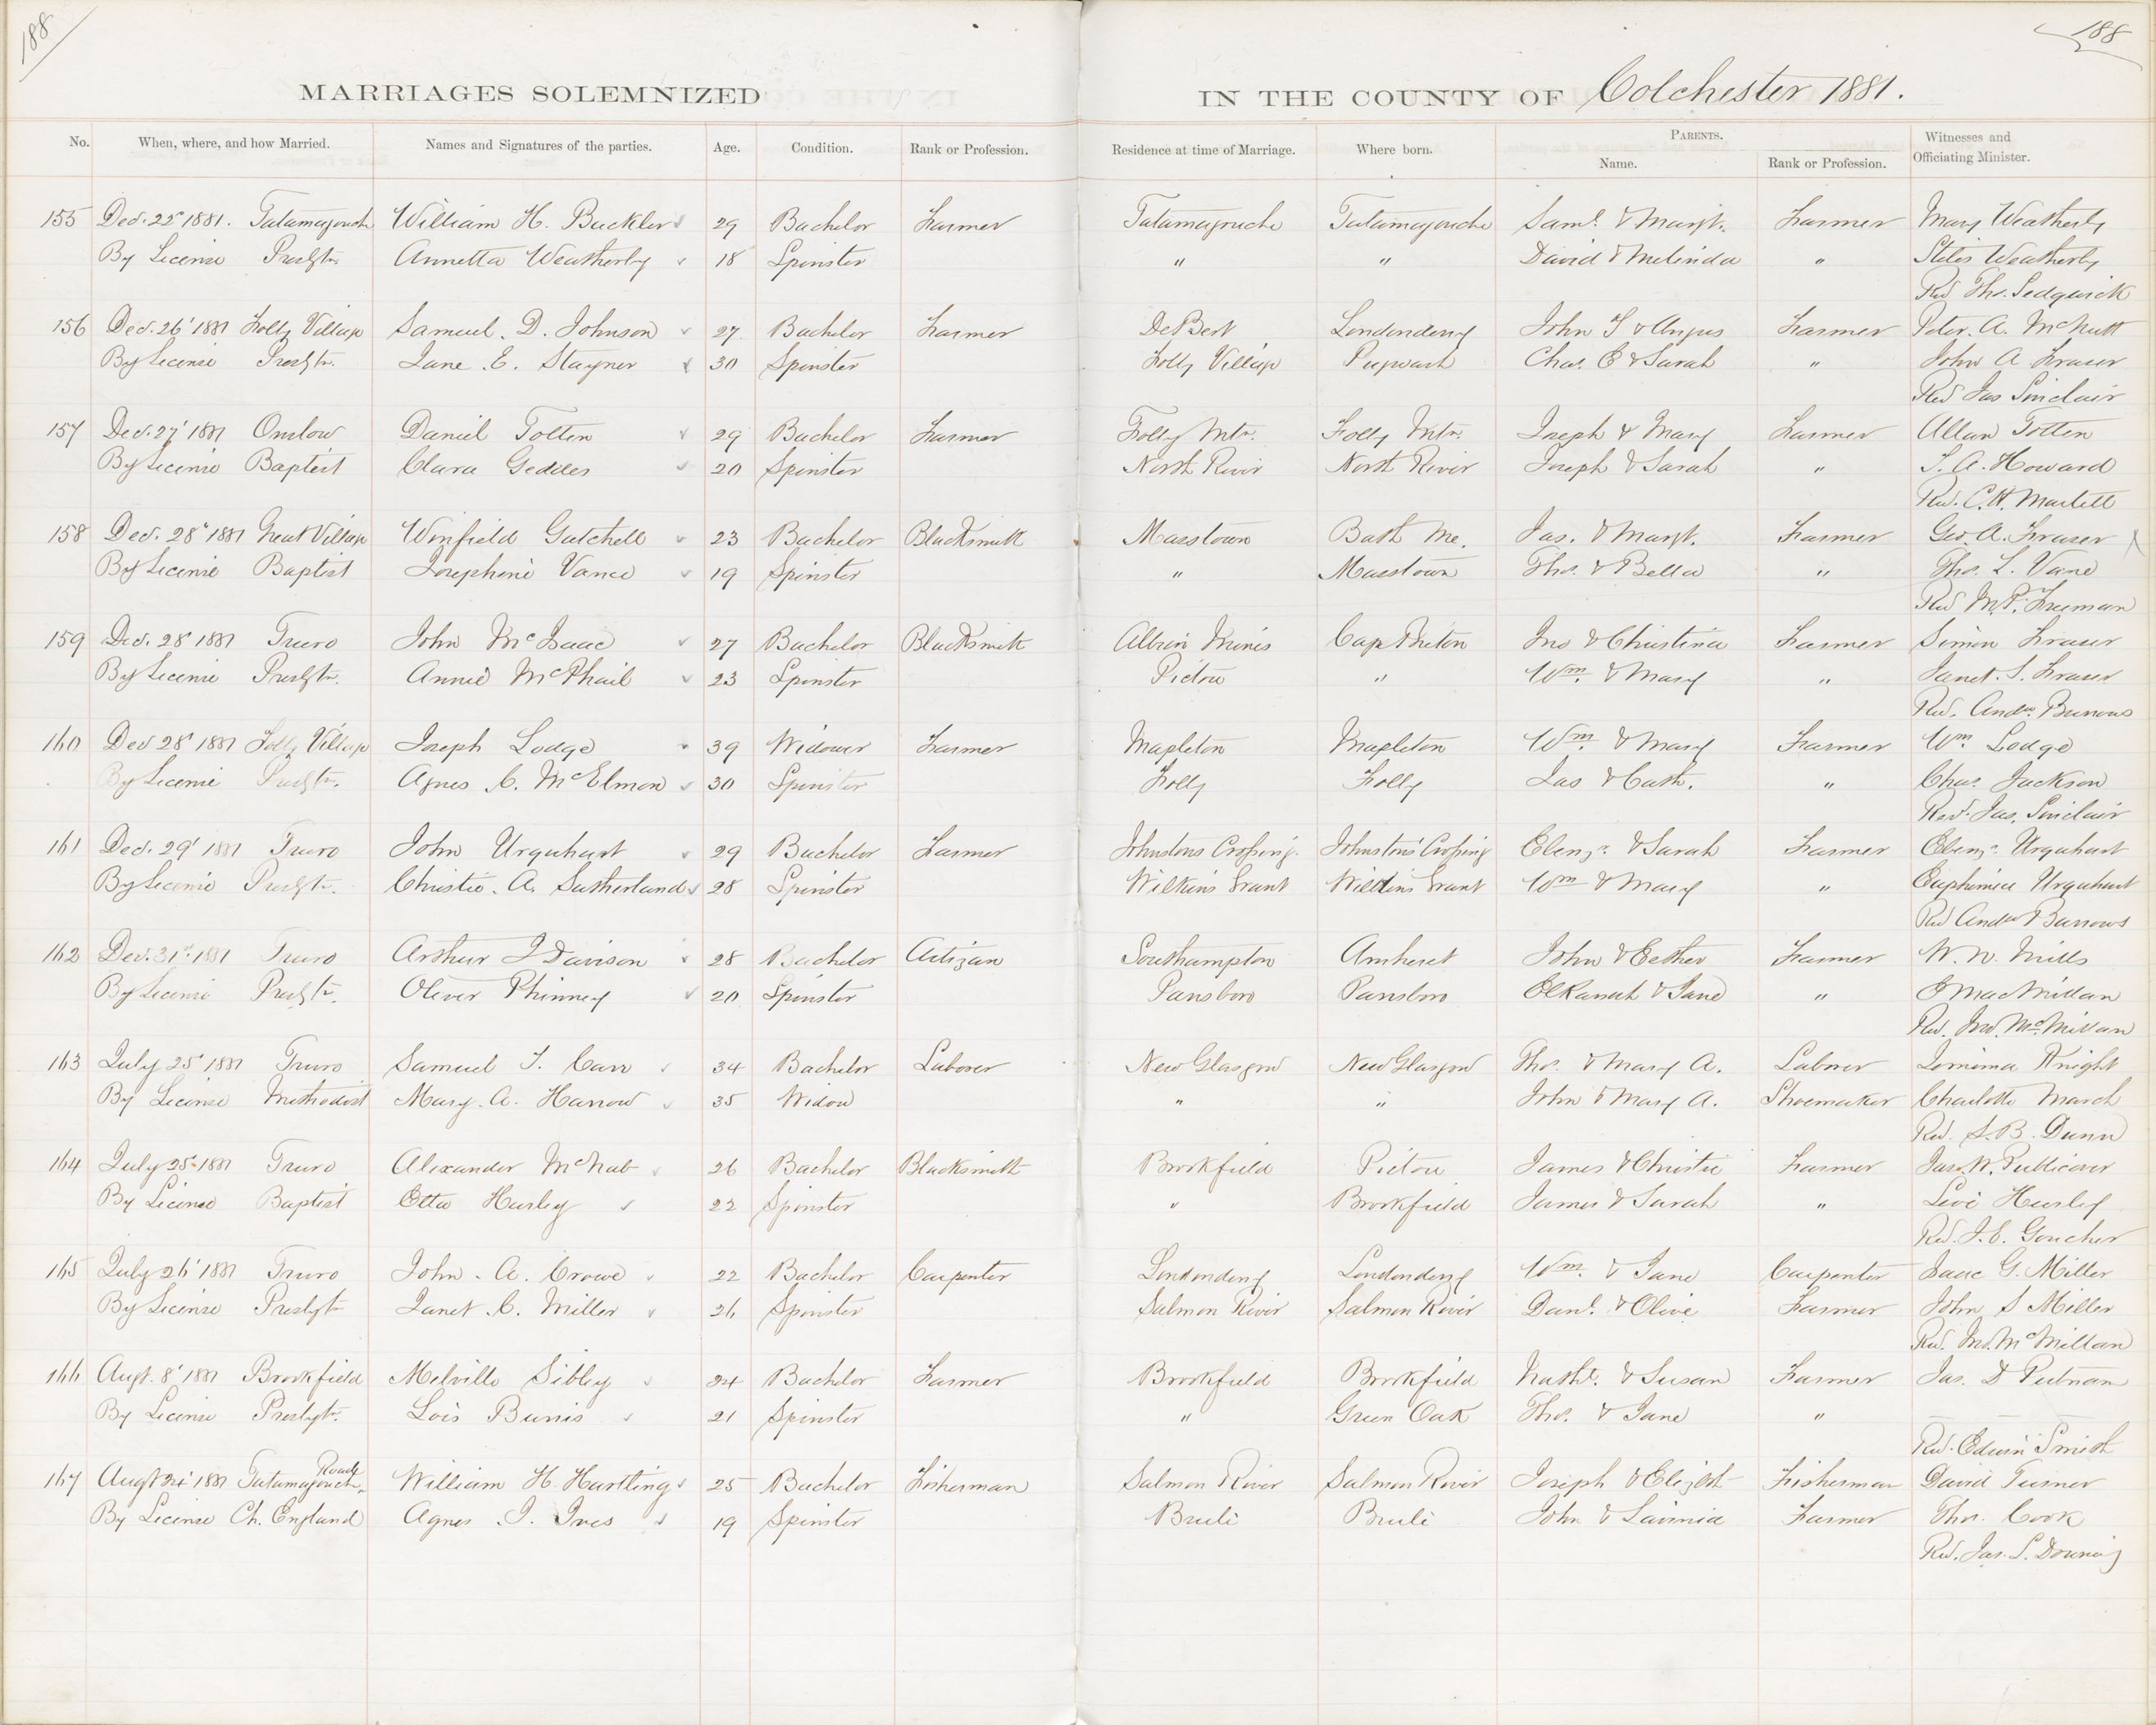 188
188
MARRIAGES SOLEMNIZED IN THE COUNTY OF Colchester 1881.
No. When, where, and how Married. Names and Signatures of the parties. Age. Condition. Rank or Profession. Residence at time of Marriage. Where born. PARENTS. Name. Rank or Profession. Witnesses and Officiating Minister.
155 Dec. 22' 1881. Tatamagouche William H. Buckler 29 Bachelor Farmer Tatamagouche Tatamagouche Saml. & Margt. Farmer Mary Weatherby
By License Presbytn. Annetta Weatherby 18 Spinster " " David & Melinda " Stiles Weatherby
Rev Tho. Sedgwick
156 Dec. 26' 1881 Folly Village Samuel. D. Johnson 27 Bachelor Farmer DeBert Londonderry John & Farmer Peter. A. McNutt
By License Presbytn. Jane. E. Stayner 30 Spinster Folly Village Pugwash Chas. E & Sarah " John A Fraser
Rev Jas Sinclair
157 Dec. 27' 1881 Onslow Daniel Totten 29 Bachelor Farmer Folly Mtn. Folly Mtn. Joseph & Mary Farmer Allan Totten
By License Baptist Clara Geddes 20 Spinster North River North River Joseph & Sarah " A. Howard
Rev. C. H. Martell
158 Dec. 28' 1881 Great Village Winfield Getchell 23 Bachelor Blacksmith Masstown Bath Me. Jas. & Margt. Farmer Geo. A. Fraser
By License Baptist Josephine Vance 19 Spinster " Masstown Tho. & Bella " Tho. L. Vance
Rev M. P. Freeman
159 Dec. 28' 1881 Truro John McIsaac 27 Bachelor Blacksmith Albion Mines Cape Breton Jno & Christina Farmer Simon Fraser
By License Presbytn. Annie McPhail 23 Spinster Pictou " Wm. & Mary " Janet. S. Fraser
Rev. Andw. Burrows
160 Dec 28' 1881 Folly Village Joseph Lodge 39 Widower Farmer Mapleton Mapleton Wm. & Mary Farmer Wm. Lodge
By License Presbytn. Agnes. C. McElmon 30 Spinster Folly Folly Jas & Cath. " Chas. Jackson
Rev. Jas. Sinclair
161 Dec. 29' 1881 Truro John Urquhart 29 Bachelor Farmer Johnstons Crossing. Johnstons Crossing Ebenzr. & Sarah Farmer Ebenzr. Urquhart
By License Presbytn. Christie. A. Sutherland 28 Spinster Wilkins Grant Wilkins Grant Wm & Mary " Euphemia Urquhart
Rev Andw Burrows
162 Dec. 31st 1881 Truro Arthur Davison 28 Bachelor Artizan Southampton Amherst John & Esther Farmer W. W. Mills
By License Presbytn. Oliver Phinney 20 Spinster Parrsboro Parrsboro Elkanah & Jane " E MacMillan
Rev. Jno. McMillan
163 July 25' 1881 Truro Samuel T. Carr 34 Bachelor Laborer New Glasgow New Glasgow Tho. & Mary A. Laborer Jemima Knight
By License Methodist Mary. A. Harrow 35 Widow " " John & Mary A. Shoemaker Charlotte March
Rev. S. B. Dunn
164 July 25' 1881 Truro Alexander McNab 26 Bachelor Blacksmith Brookfield Pictou James & Christie Farmer Jas. W. Publicover
By License Baptist Etta Hurley 22 Spinster " Brookfield James & Sarah " Levi Hurley
Rev. J. E. Goucher
165 July 26' 1881 Truro John. A. Crowe 22 Bachelor Carpenter Londonderry Londonderry Wm. & Jane Carpenter Isaac G. Miller
By License Presbytn Janet. C. Miller 26 Spinster Salmon River Salmon River Danl. & Olive Farmer John S Miller
Rev. Jno. McMillan
166 Augt. 8' 1881 Brookfield Melville Sibley 24 Bachelor Farmer Brookfield Brookfield Nathl. & Susan Farmer Jas. D Putnam
By License Presbytn. Lois Burris 21 Spinster " Green Oak Tho. & Jane "
Rev. Edwin Smith
167 Augt 24' 1881 Tatamagouche Road William H. Hartling 25 Bachelor Fisherman Salmon River Salmon River Joseph & Elizbth Fisherman David Turner
By License Ch. England Agnes. J. Ives 19 Spinster Brule Brule John & Lavinia Farmer Thos. Cook
Rev. Jas. S. Downing